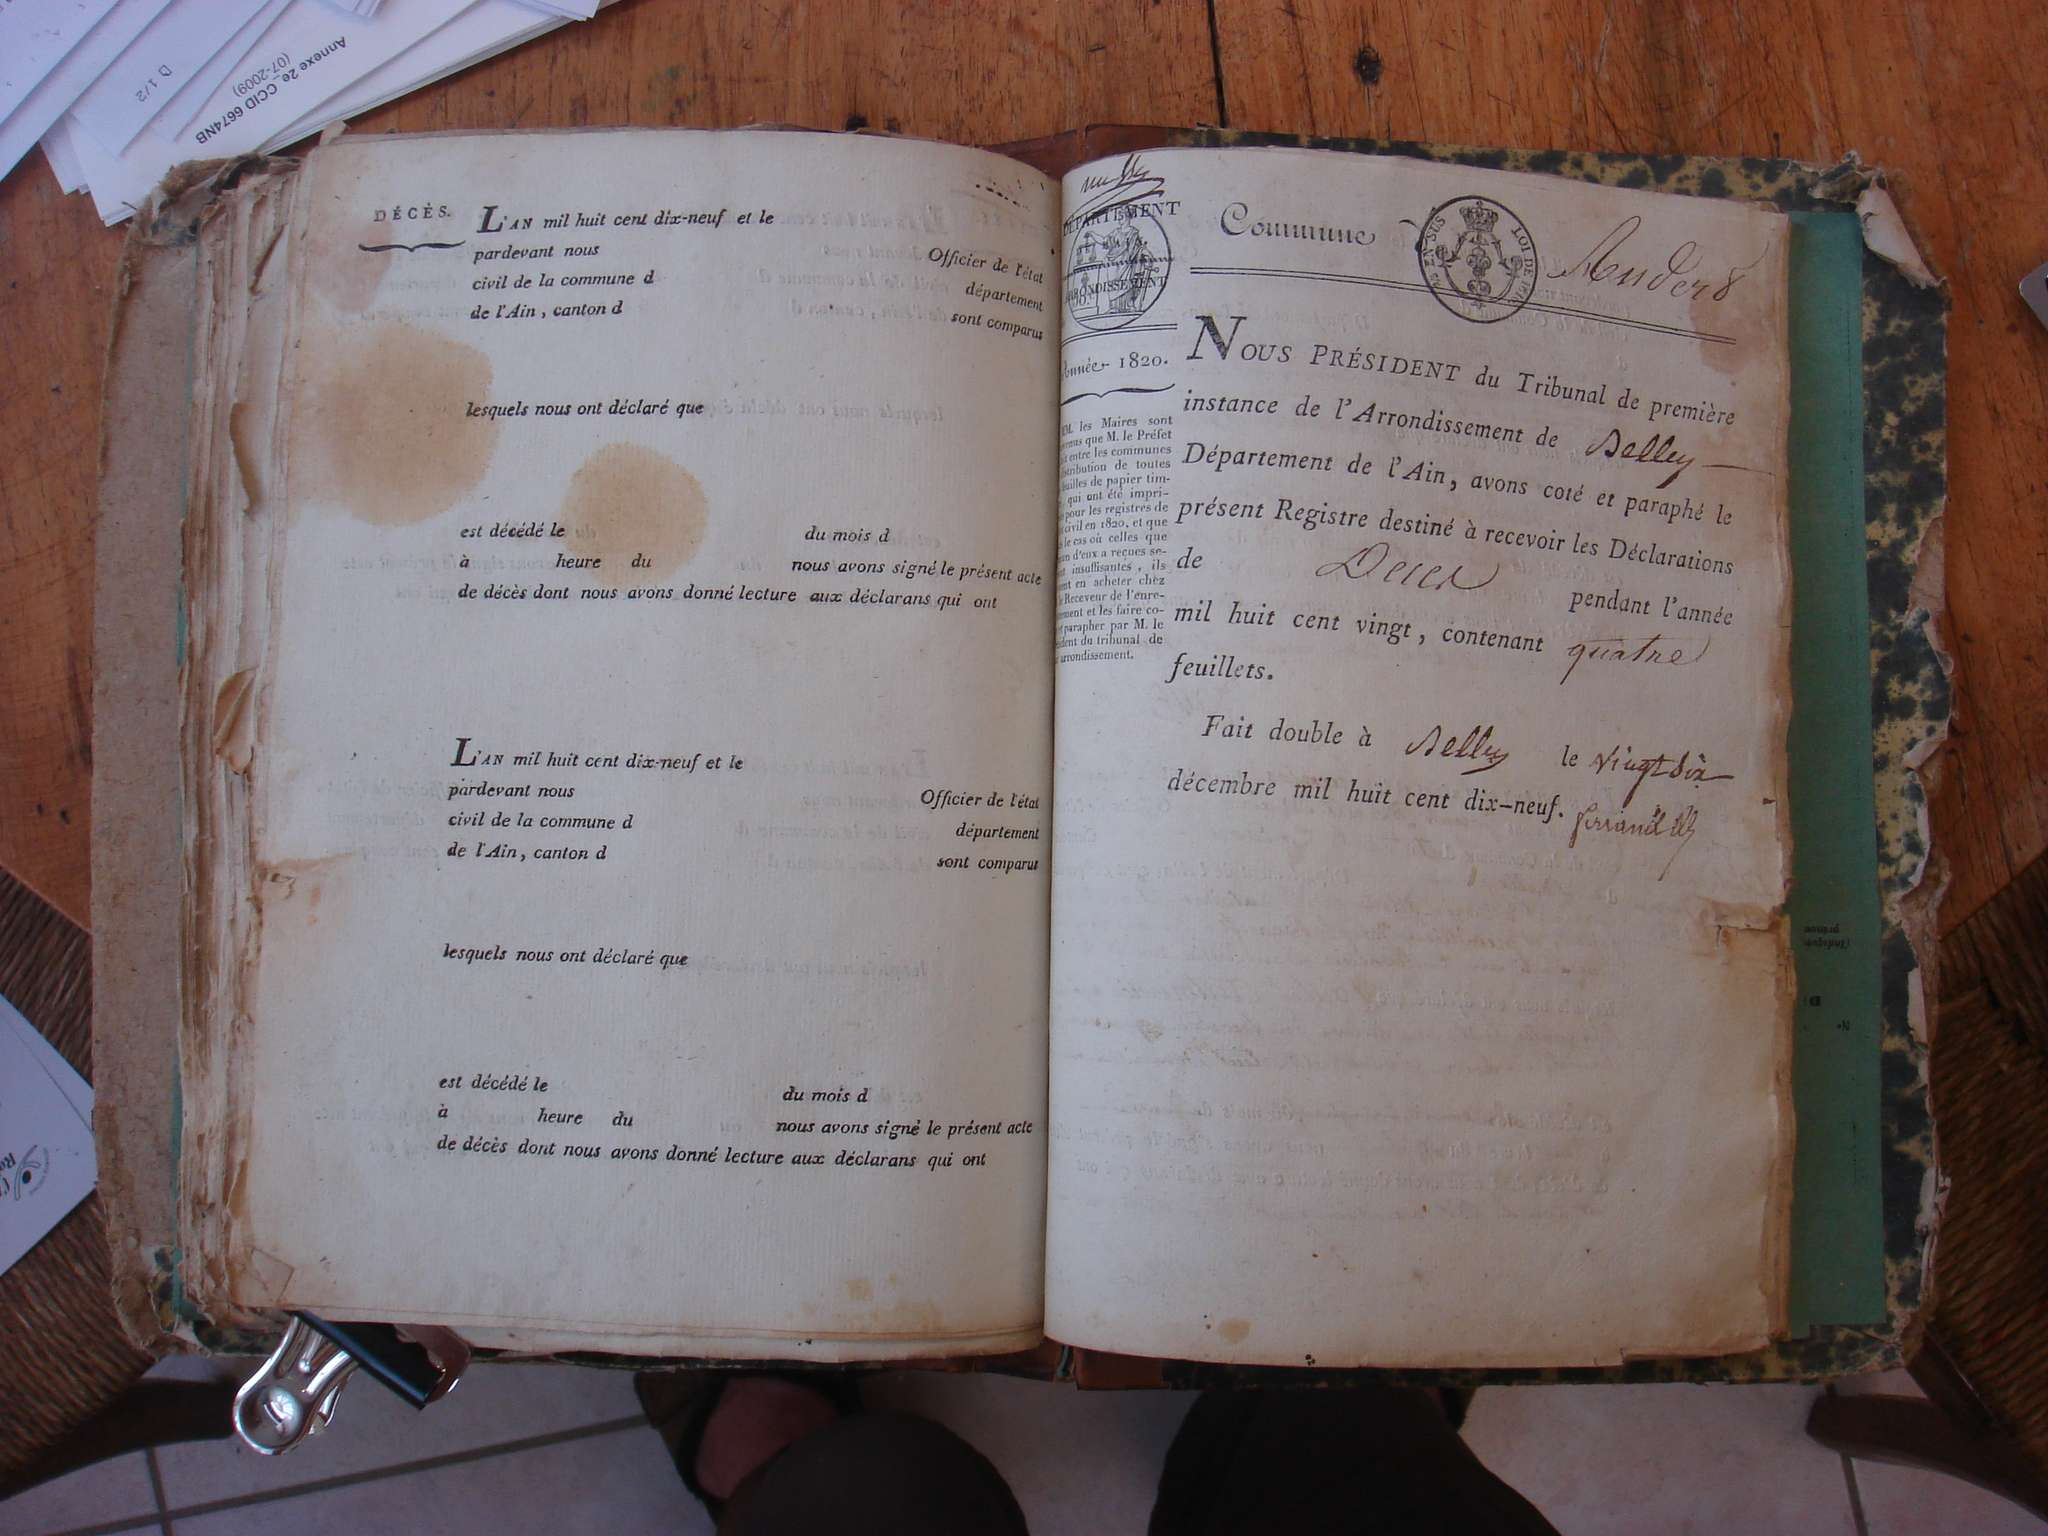 Annexe 2e_ CCID 6674NB
(07-2009)
D 1 1/2
DÉCÈS.
L'AN mil huit cent dix-neuf et le
pardevant nous Officier de l'état
civil de la commune d département
de l'Ain, canton d sont comparus
lesquels nous ont déclaré que
est décédé le du mois d
à heure du nous avons signé le présent acte
de décès dont nous avons donné lecture aux déclarans qui ont
L'AN mil huit cent dix-neuf et le
pardevant nous Officier de l'état
civil de la commune d département
de l'Ain, canton d sont comparus
lesquels nous ont déclaré que
est décédé le du mois d
à heure du nous avons signé le présent acte
de décès dont nous avons donné lecture aux déclarans qui ont
DÉPARTEMENT
DE L'AIN.
ARRONDISSEMENT
Année 1820.
MM. les Maires sont
que M. le Préfet
entre les communes
distribution de toutes
feuilles de papier tim-
qui ont été impri-
pour les registres de
civil en 1820, et que
le cas où celles que
d'eux a reçues se-
insuffisantes, ils
en acheter chez
Receveur de l'enre-
et les faire co-
parapher par M. le
du tribunal de
arrondissement.
Commune Andert
EN SUS LOI DE
NOUS PRÉSIDENT du Tribunal de première
instance de l'Arrondissement de Belley
Département de l'Ain, avons coté et paraphé le
présent Registre destiné à recevoir les Déclarations
de Décès pendant l'année
mil huit cent vingt, contenant quatre
feuillets.
Fait double à Belley le vingt six
décembre mil huit cent dix-neuf.